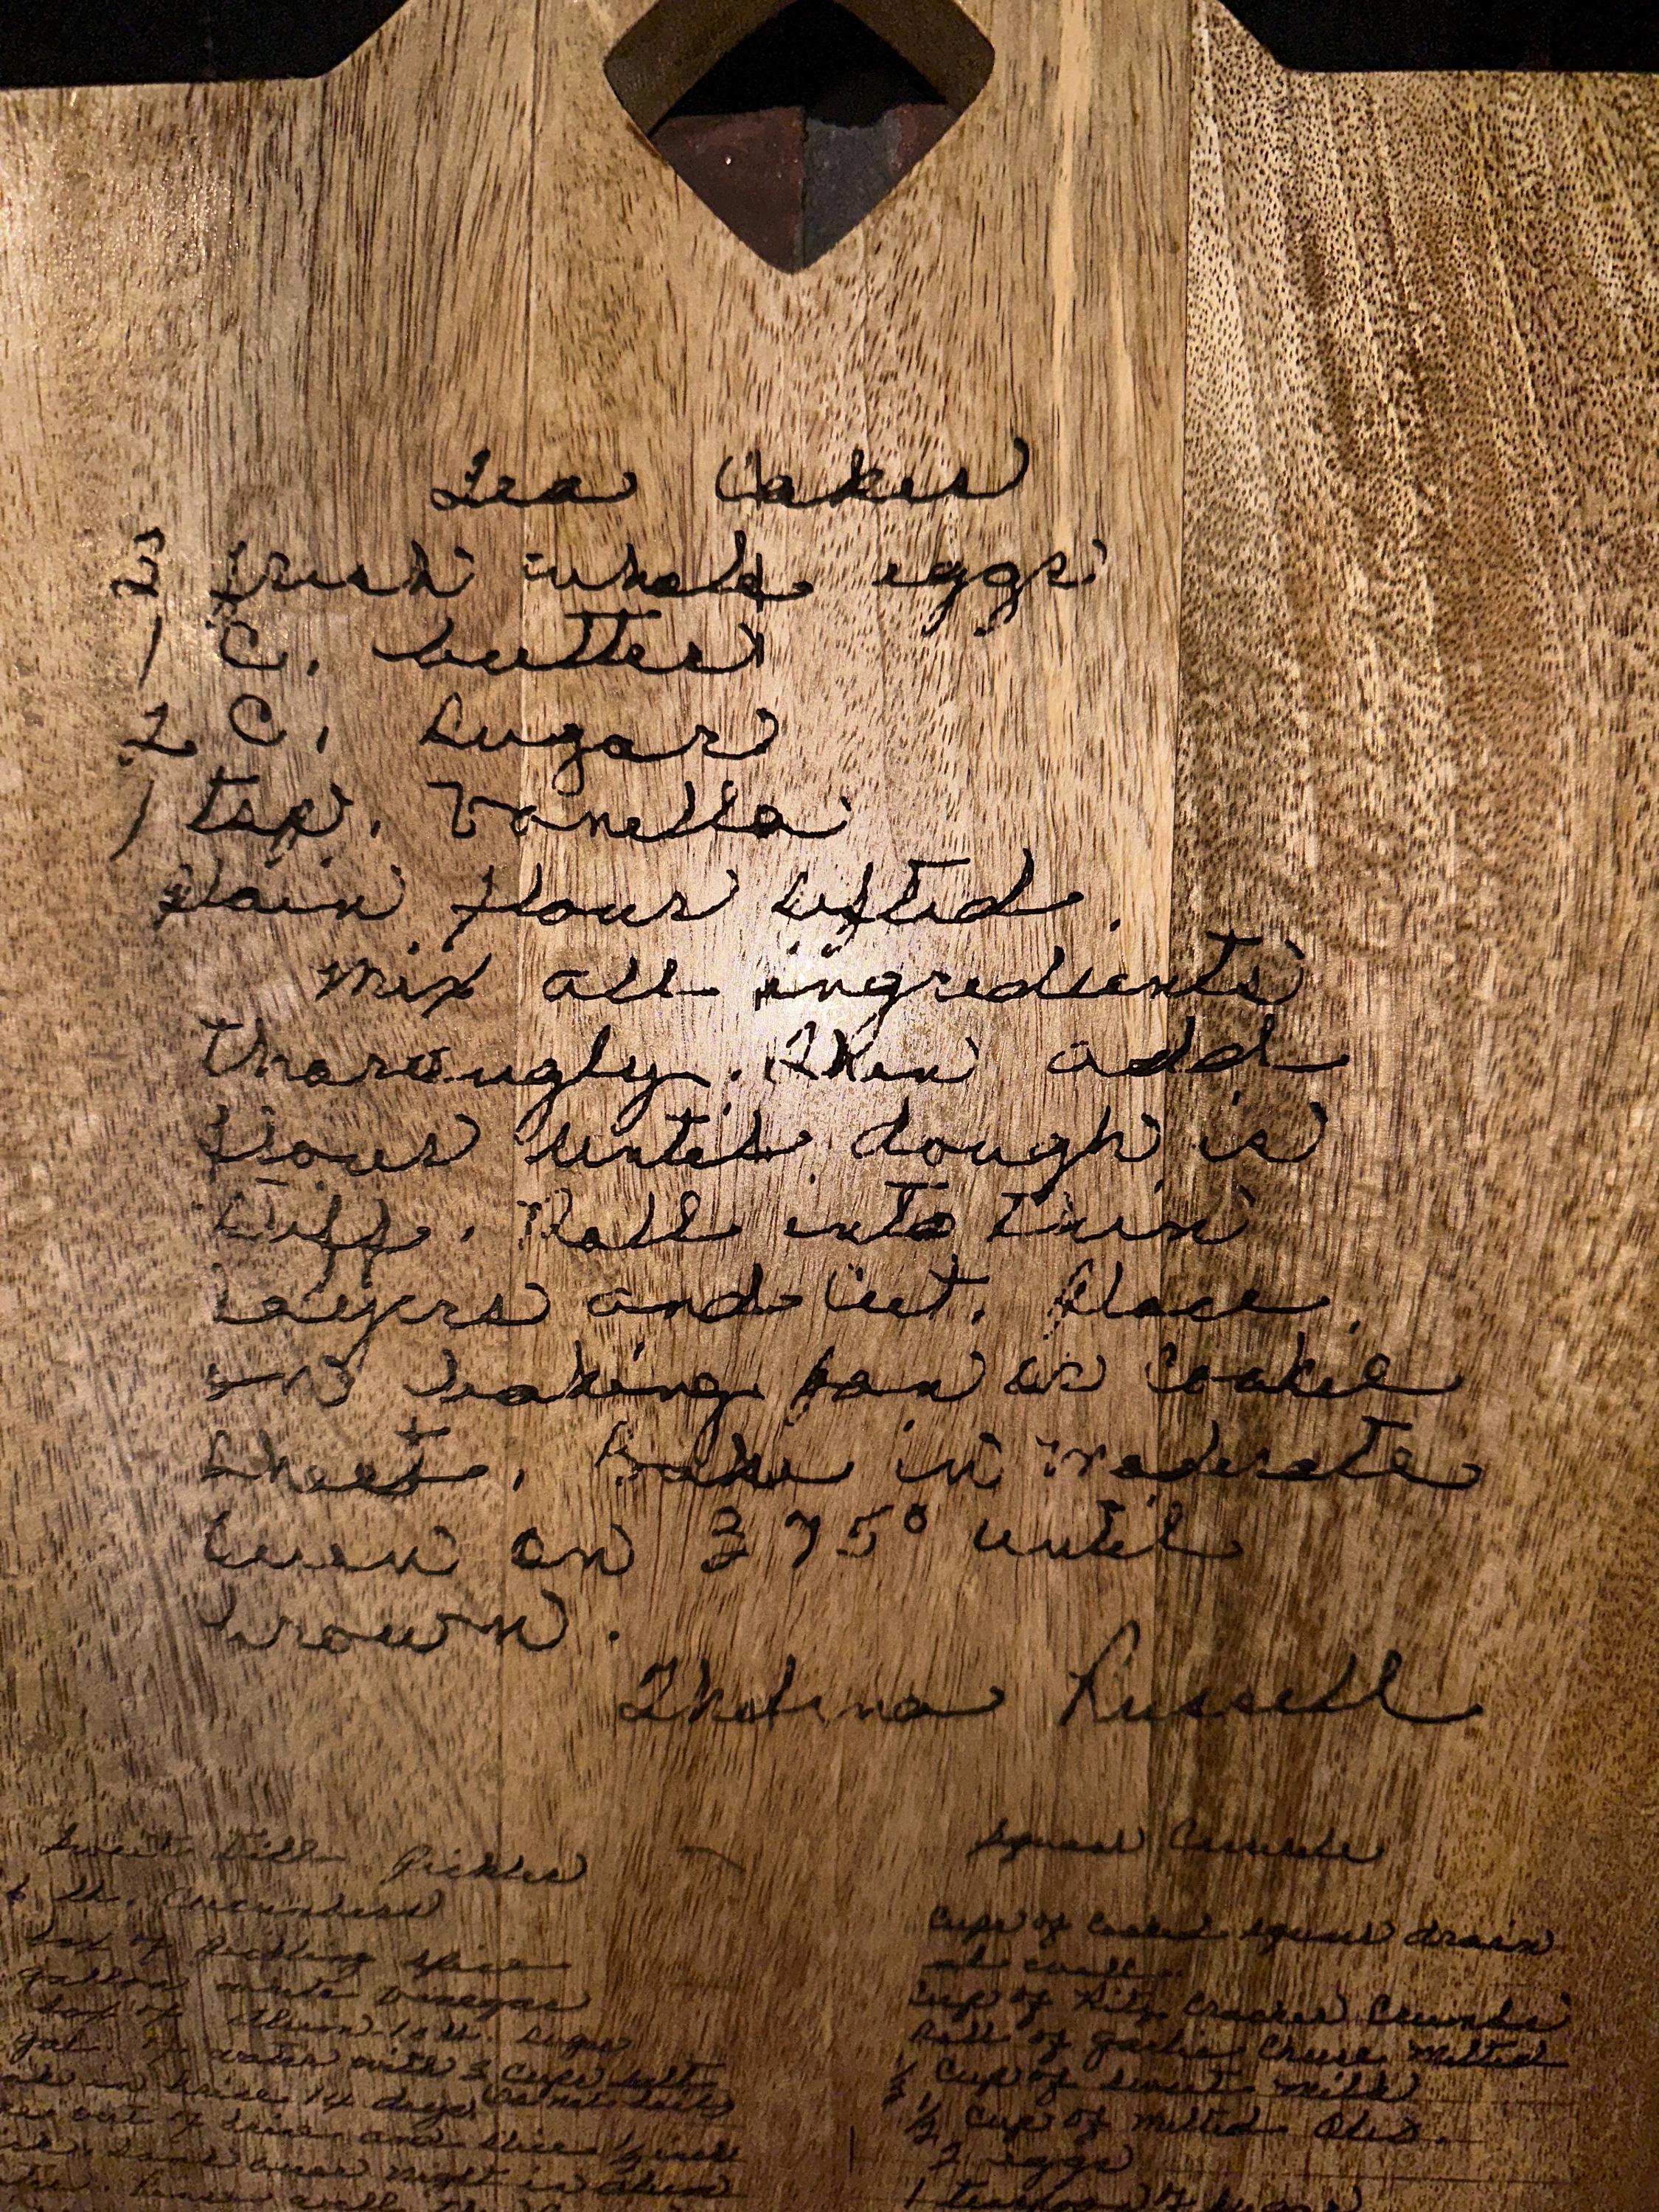 Tea Cakes
3 fresh whole eggs
1 C. butter
2 C. Sugar
1 tsp. Vanella
plain flour sifted.
Mix all ingredients
thorougly. Then add
flour until dough is
stiff. Roll into thin
layers and cut. Place
baking pan or cookie
sheet. Bake in moderate
oven on 375° until
brown.
Thelma Russell
Sweet Dill Pickles
lb. cucumbers
box of Pickling spice
gallon white Vinegar
box of Alum 10 lb. sugar
gal. of water with 3 cups salt
in brine 14 days Do not
out of brine and slice 1/2 inch
over night in alum
well
Squash
Cups of cooked squash drain
well
Cup of Ritz Cracker Crumbs
Roll of garlic Cheese Melted
1/2 Cup of sweet milk
1/2 Cup of Melted Oleo.
2 eggs
1 teaspoon of sugar